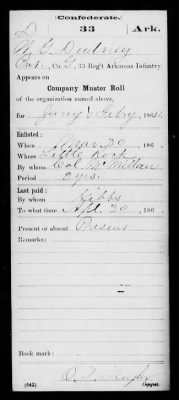 Confederate.
D 33 Ark.
W. G. Dudney
Pvt., Co. G, 33 Reg't Arkansas Infantry.
Appears on
Company Muster Roll
of the organization named above,
for Jany & Feby, 1864.
Enlisted:
When Mar 30, 186 .
Where Little Rock
By whom Col. McMillan
Period 3 yrs.
Last paid:
By whom Gibbs
To what time 30, 186 .
Present or absent Present
Remarks:
Book mark:
(642) Copyist.